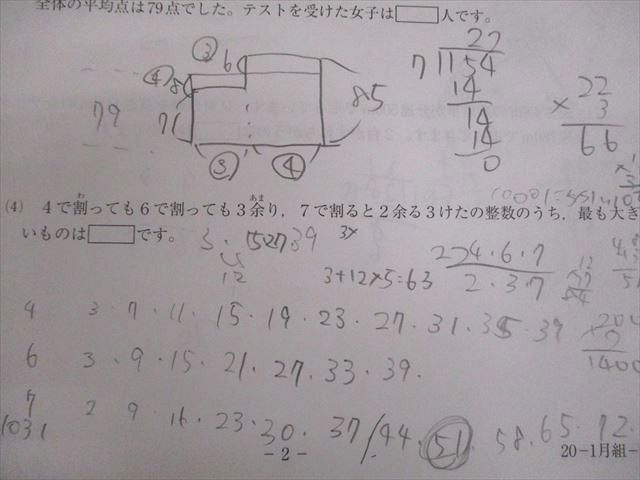 全体の平均点は79点でした。テストを受けた女子は 人です。
③ 6
④ 8
79 71 85
③ ④
22
7 154
14
14
14
0
22
× 3
66
(4) 4で割っても6で割っても3余り，7で割ると2余る3けたの整数のうち，最も大き
わ あま
いものは です。
3 · 15 27 39 3×
12
3+12×5=63
2)4·6·7
2·3·7
4 3·7·11·15·19·23·27·31·35·39
6 3·9·15·21·27·33·39.
200
1400
7 2 9 16·23·30·37/44·51·58·65·72·
1031
－2－
20－1月組－